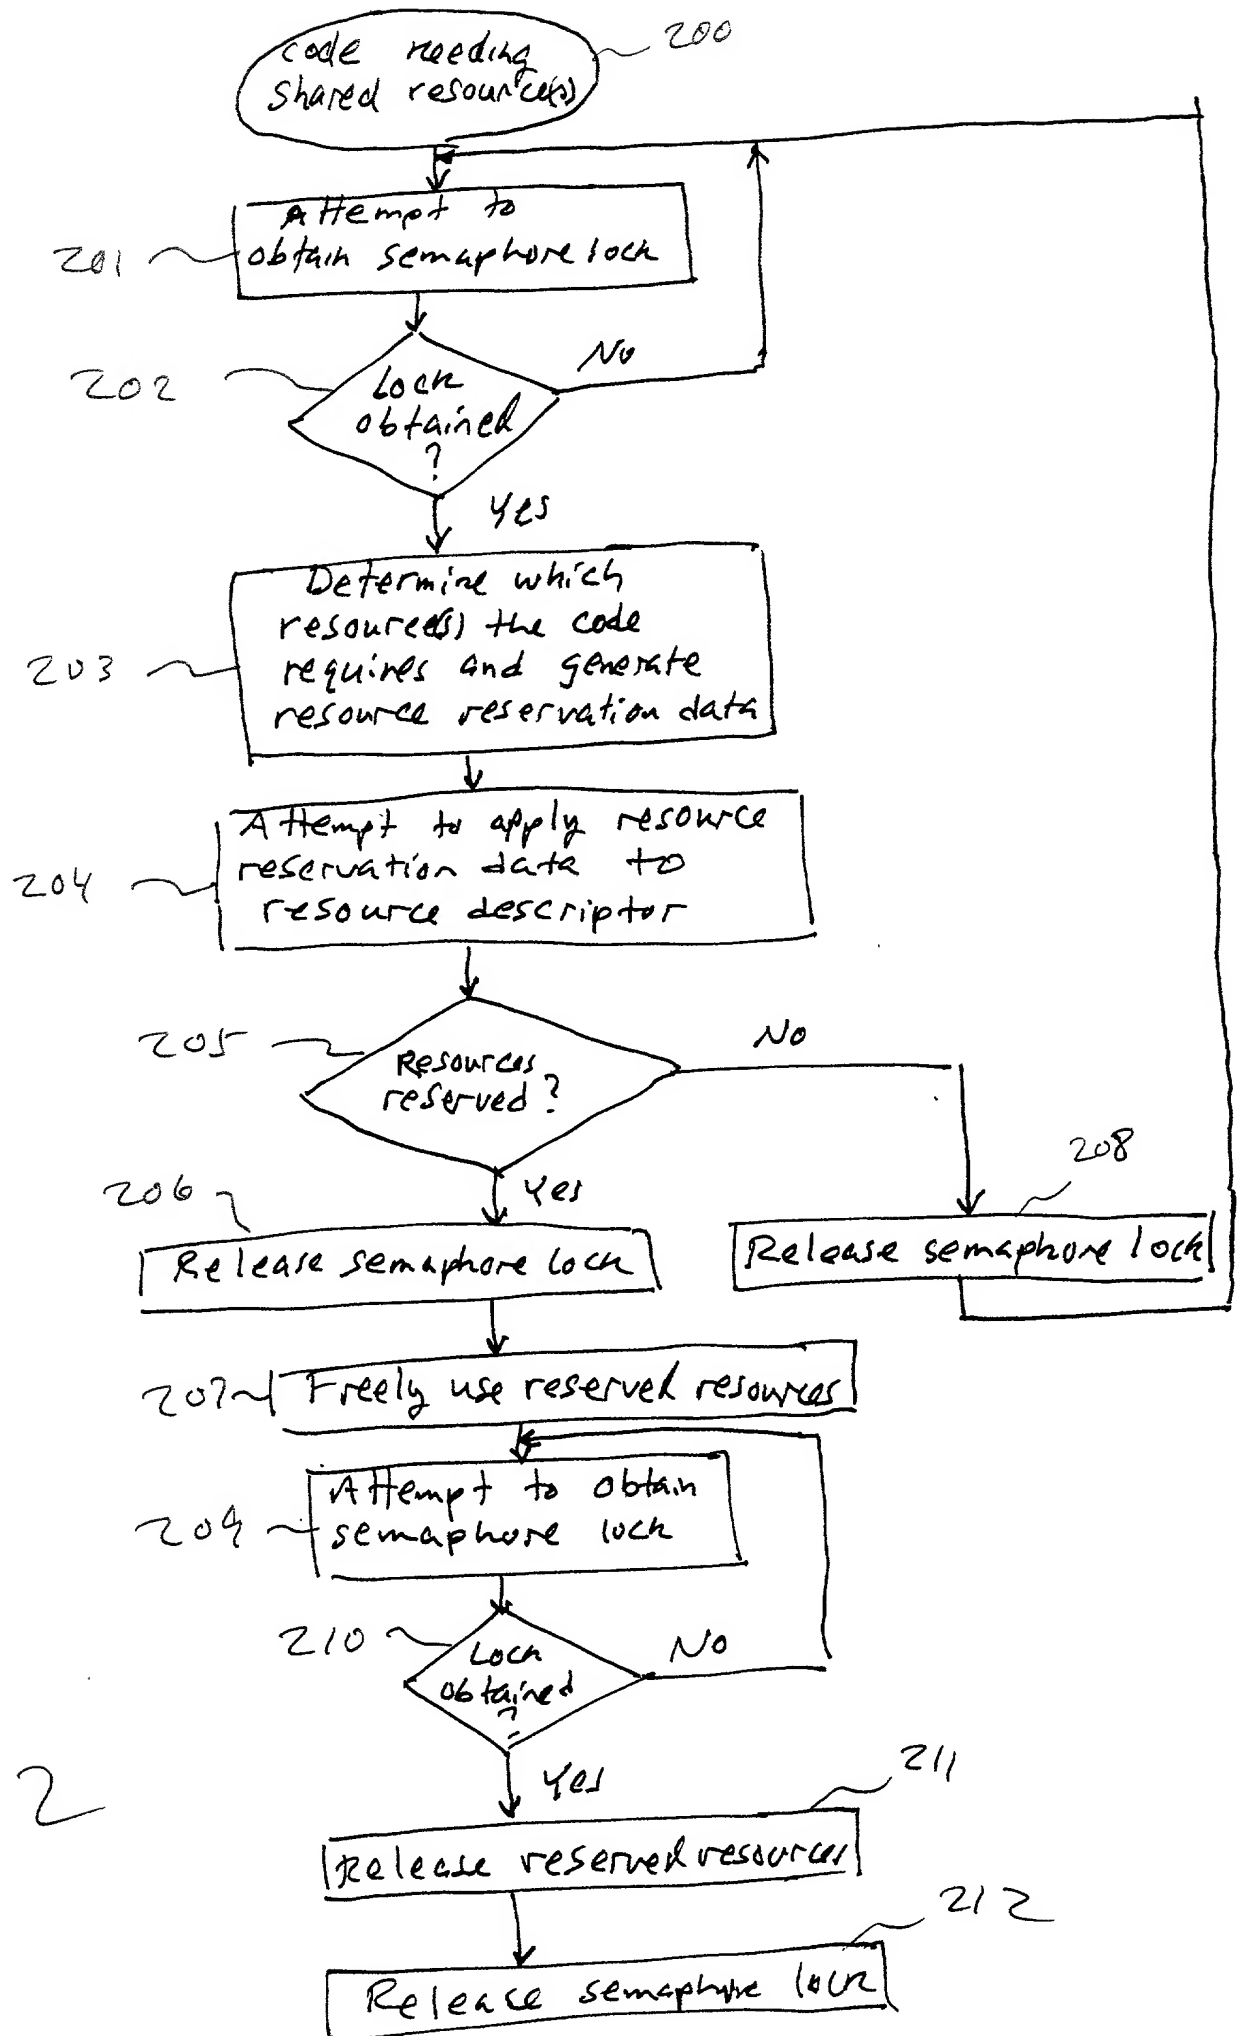 code needing
shared resource(s)
200
Attempt to
obtain semaphore lock
201
202
Lock
obtained
?
No
Yes
Determine which
resource(s) the code
requires and generate
resource reservation data
203
Attempt to apply resource
reservation data to
resource descriptor
204
205
Resources
reserved?
No
Yes
206
Release semaphore lock
208
Release semaphore lock
207
Freely use reserved resources
Attempt to obtain
semaphore lock
209
210
Lock
obtained
?
No
Yes
2
211
Release reserved resources
212
Release semaphore lock